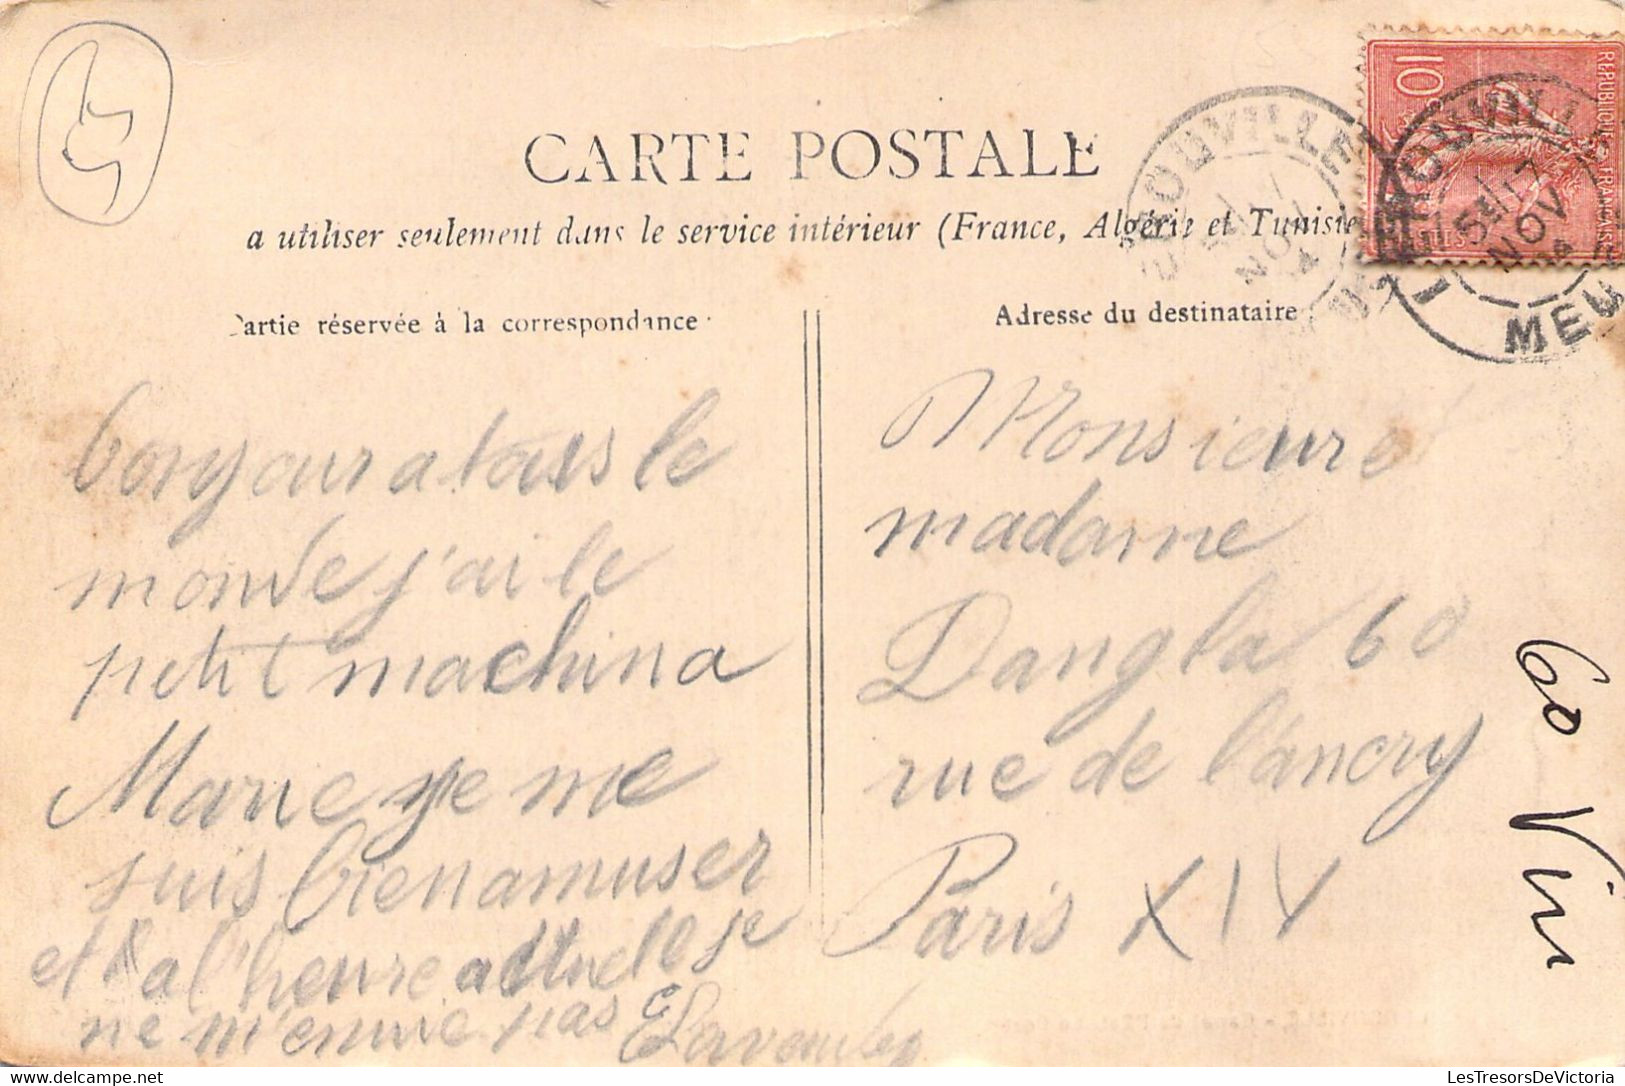 CARTE POSTALE
a utiliser seulement dans le service intérieur (France, Algérie et Tunisie
Partie réservée à la correspondance
Adresse du destinataire
10
REPUBLIQUE FRANÇAISE
LEROUVILLE
5 17
NOV
04
MEUSE
bonjour a tous le
monde j'ai le
petit machina
Marie je me
suis bien amuser
et a l'heure actuelle je
ne m'ennuie pas
Monsieur et
madame
Dangla 60
rue de l'ancry
Paris XIV
60 Vin
LesTresorsDeVictoria